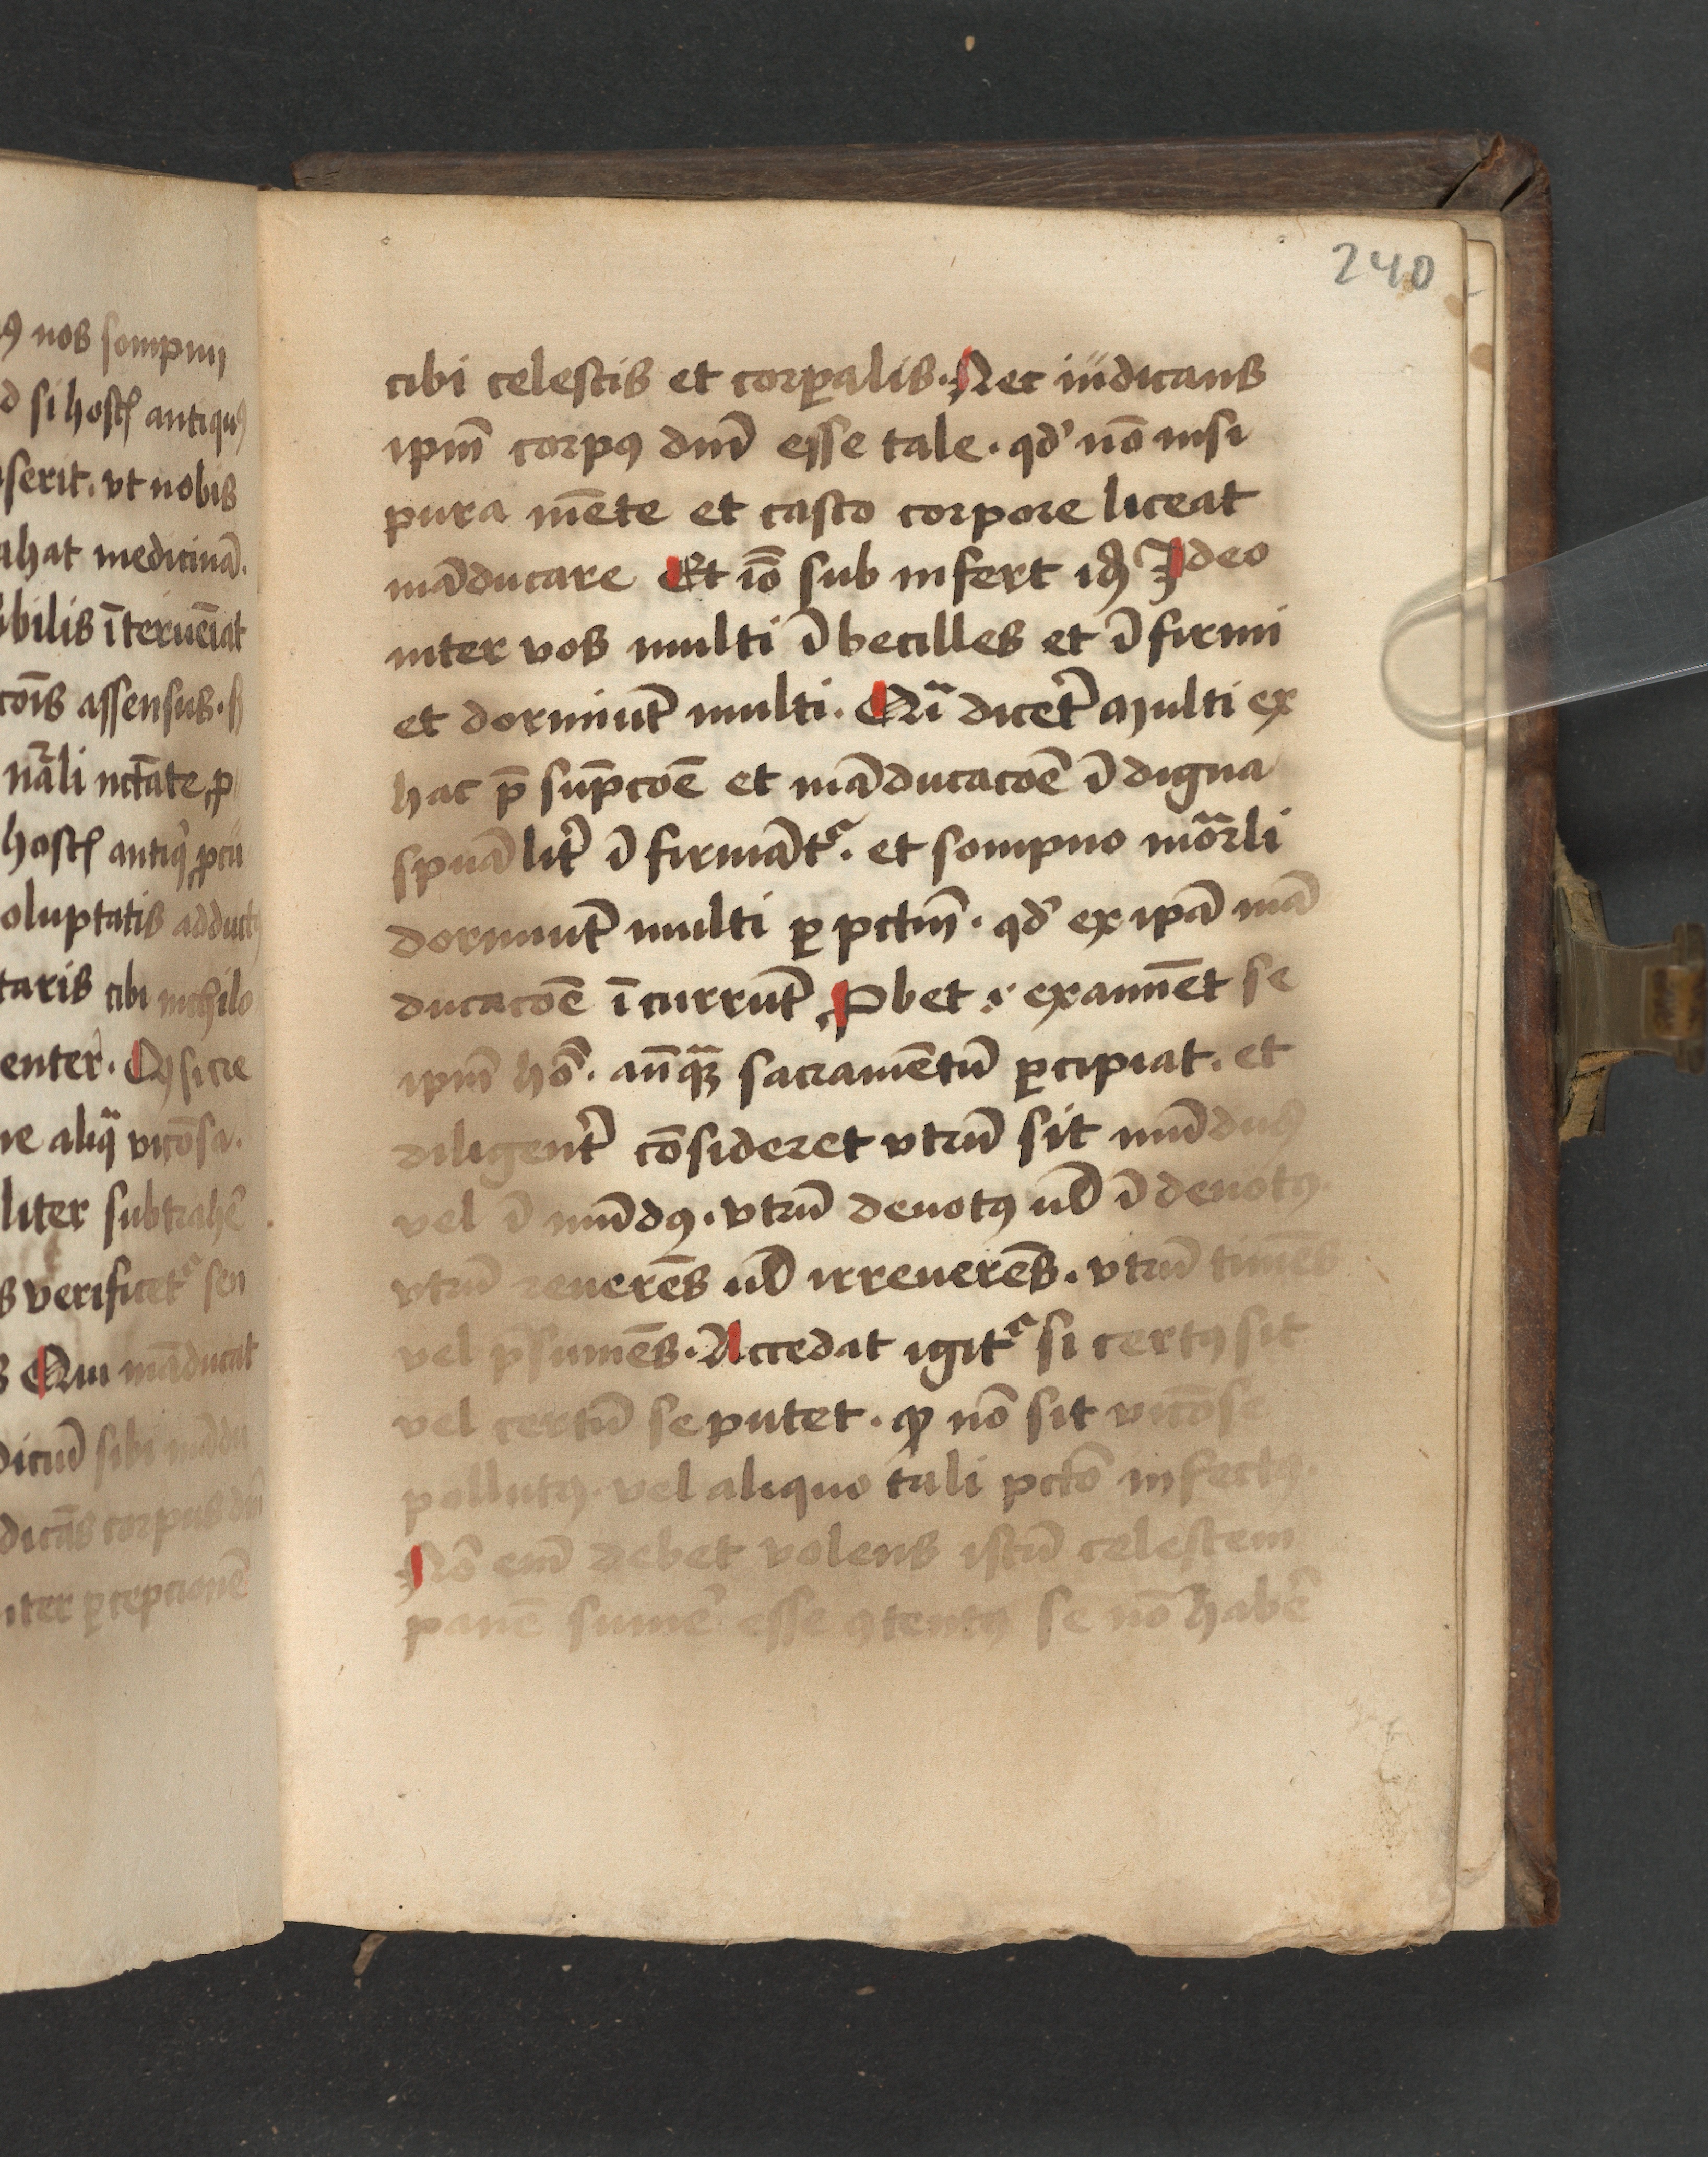 ꝰ nos sompnij
d si hostꝭ antiquꝰ
serit. vt nobis
ahat medicinā.
bilis īterueīat
coīs assensus.
nāli nctāte ꝓ
hostꝭ antiqͥ
oluptatis adductꝰ
taris cibi nichilo
enter̄.
ne aliqͣ
liter subtrahe͛
s verificet᷑ seu
s Qui māducat
dicuū sibi mādu
dicās corpus dnī
nter ꝑcepcionē
240
cibi celestis et corꝑalis. Nec iudicans
ipm̄ corpꝰ dnī esse tale. qd̓ nō nisi
pura mēte et casto corpore liceat
māducare Et iō sub infert Ideo
inter vos multi ībecilles et ī firmi
et dormiūt multi. Qͣi dicet͛ Multi ex
hac p̄ sūpcōē et māducacōē ī digna
spūalit͛ ī firmāt᷑. et sompno mōrli
dormiūt multi ꝑ pctm̄. qd̓ ex ipā mā
ducacōē īcurrūt ꝓbet .i. examīet se
ipm̄ hō. an̄qͣꝫ sacramētū ꝑcipiat. et
diligent͛ cōsideret vtrū sit mūdus
vel ī mūdꝰ. vtrū deuotꝰ ul̄ ī deuotꝰ.
vtrū reuerēs ul̄ irreuerēs. vtrū timēs
vel p̄sumēs. Accedat igit᷑ si certꝰ sit
vel certū se putet. ꝙ nō sit vicōse
pollutꝰ. vel aliquo tali pctō infectꝰ.
Nō enī debet volens istū celestem
panē sume͛ esse ꝯtentꝰ se nō habe͛